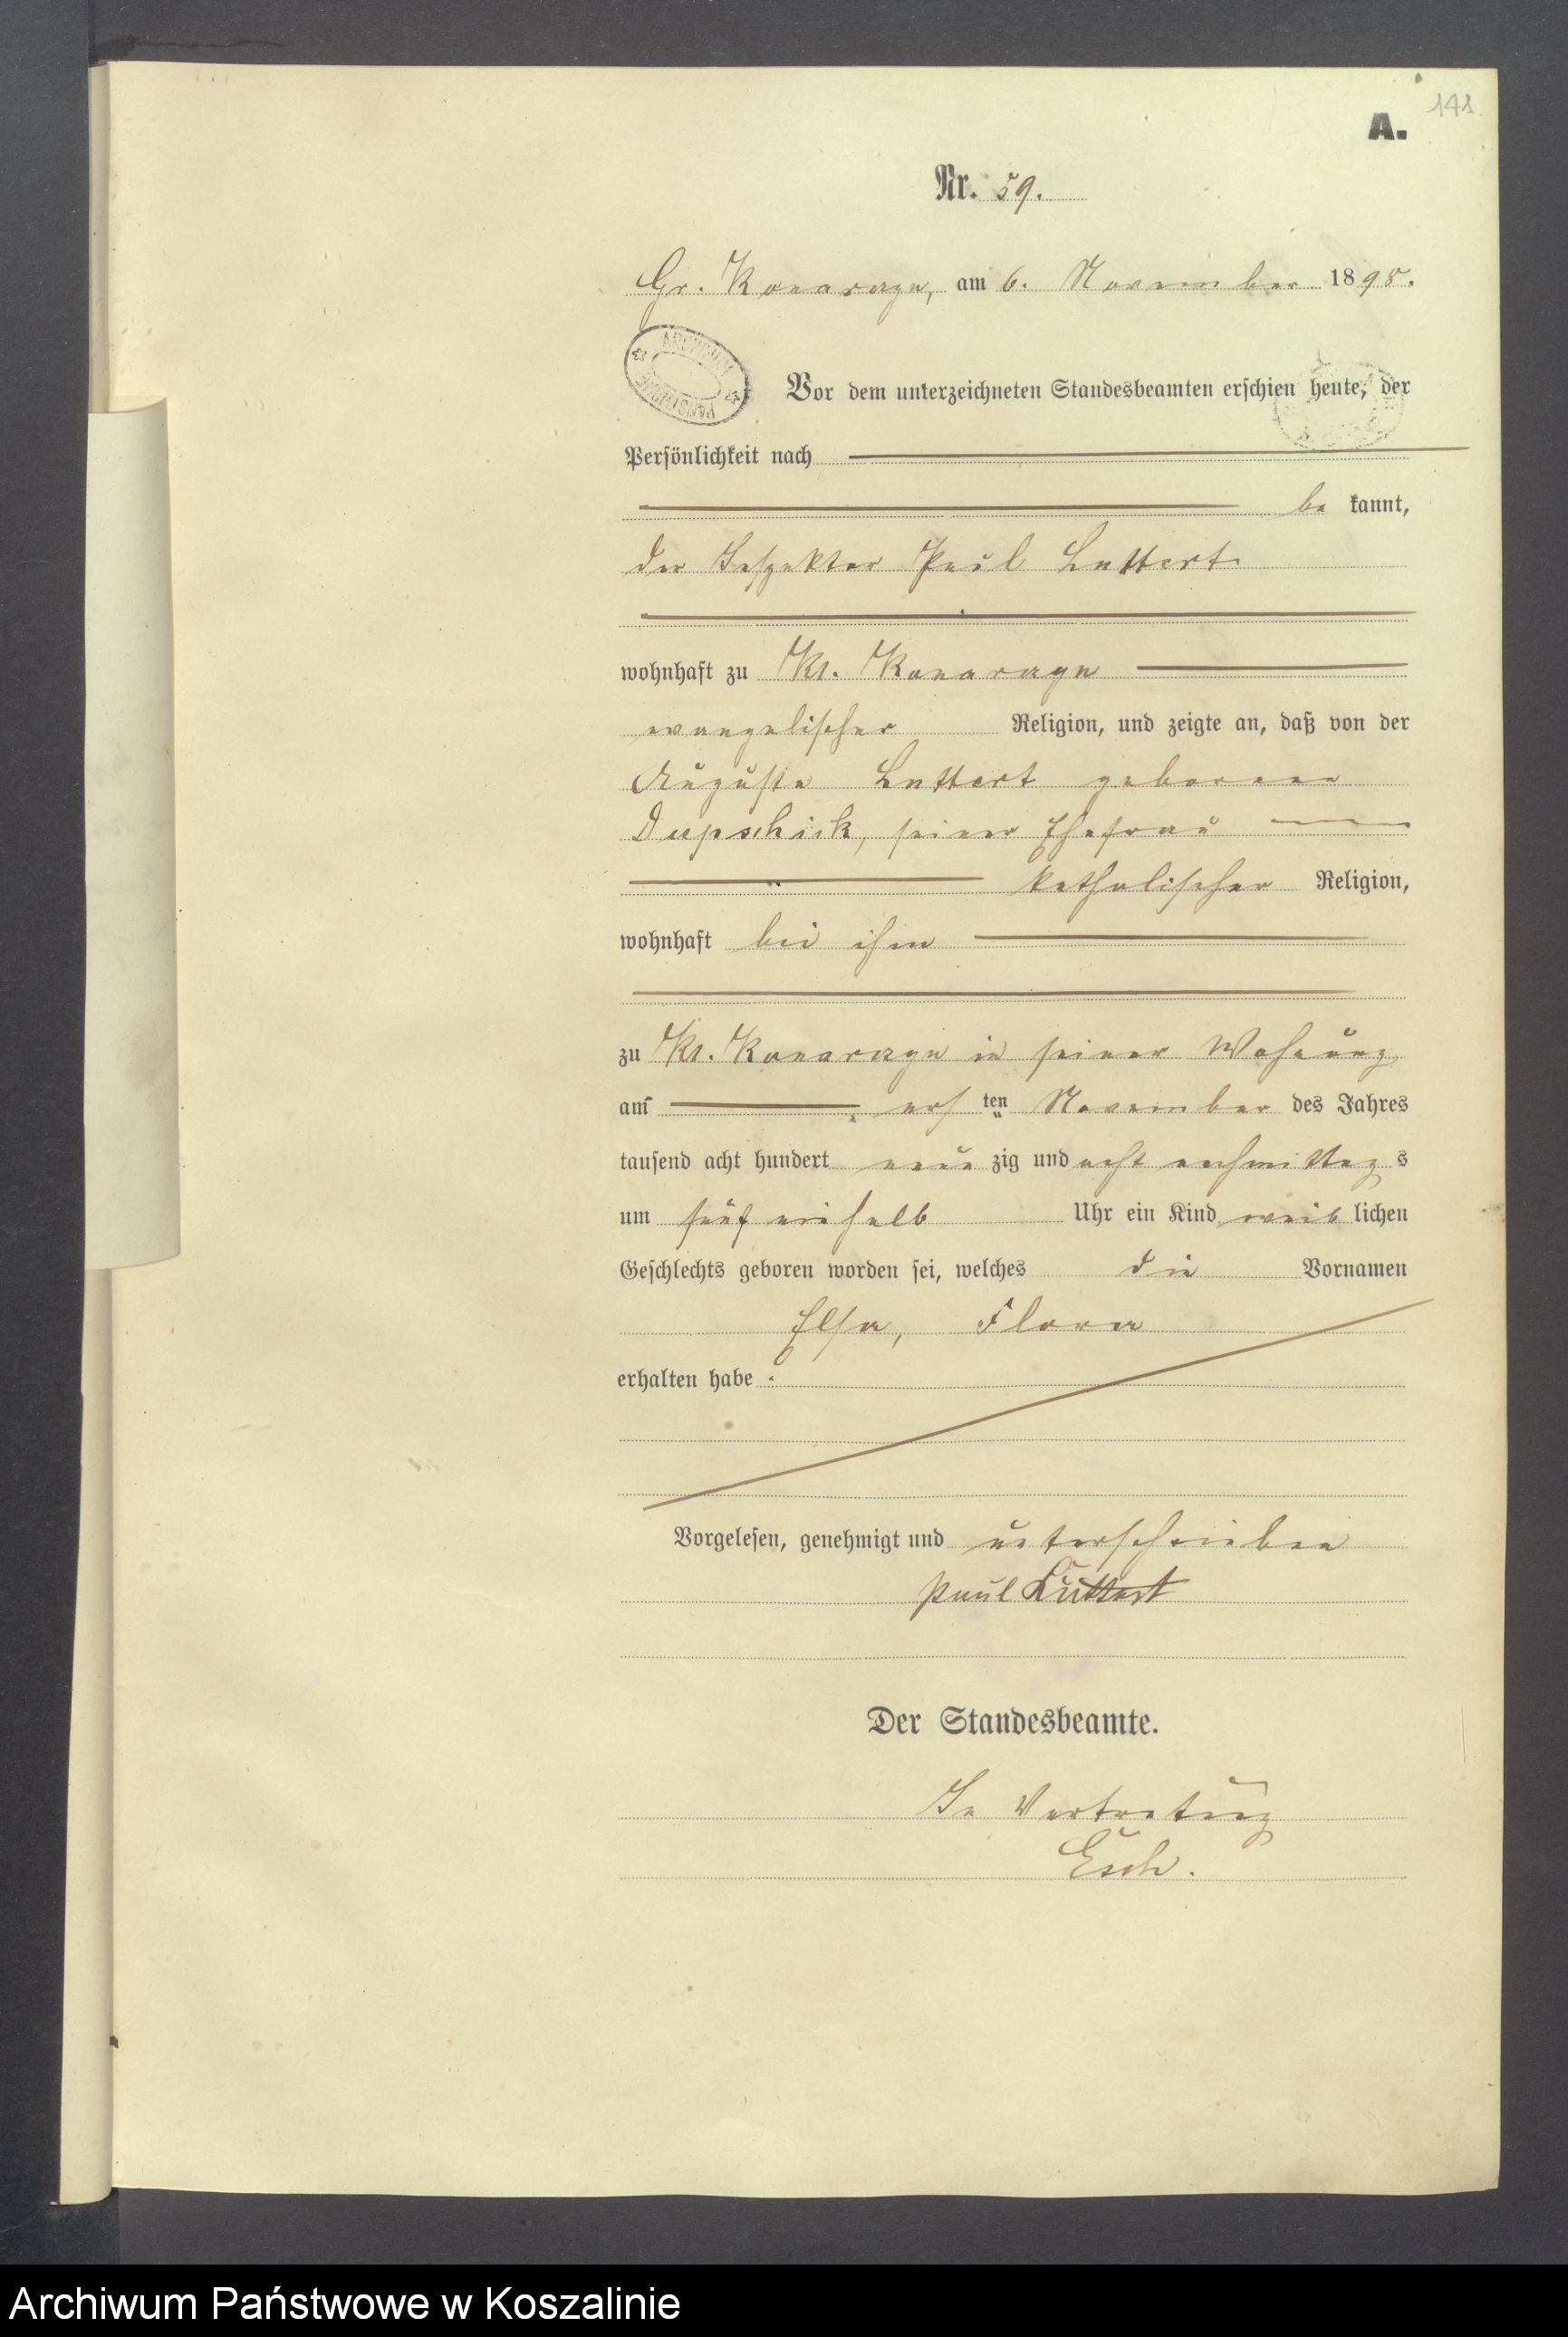 141
A.
Nr. 59.
Gr. Konarczyn, am 6. November 1898.
ARCHIWUM PAŃSTWOWE
Vor dem unterzeichneten Standesbeamten erschien heute, der
Persönlichkeit nach
be kannt,
der Inspektor Paul Luttert
wohnhaft zu Kl. Konarczyn
evangelischer Religion, und zeigte an, daß von der
Auguste Luttert geborene
seiner Ehefrau
katholischer Religion,
wohnhaft bei ihm
zu Kl. Konarczyn in seiner Wohnung
am ersten November des Jahres
tausend acht hundert neun zig und acht nachmittag s
um fünf einhalb Uhr ein Kind weib lichen
Geschlechts geboren worden sei, welches die Vornamen
Elsa, Flora
erhalten habe.
Vorgelesen, genehmigt und unterschrieben
Paul Luttert
Der Standesbeamte.
In Vertretung
Esch.
Archiwum Państwowe w Koszalinie